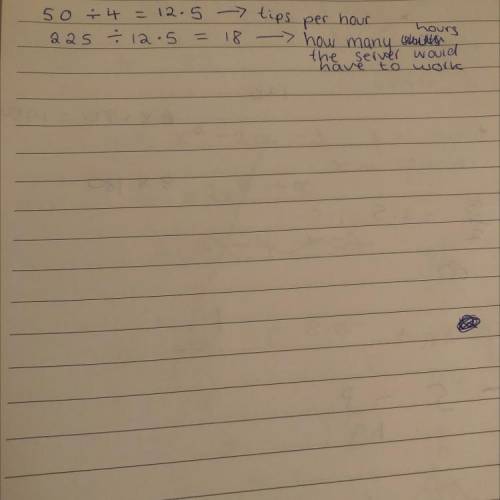 50 ÷ 4 = 12.5 → tips per hour
225 ÷ 12.5 = 18 → how many hours
the server would
have to work